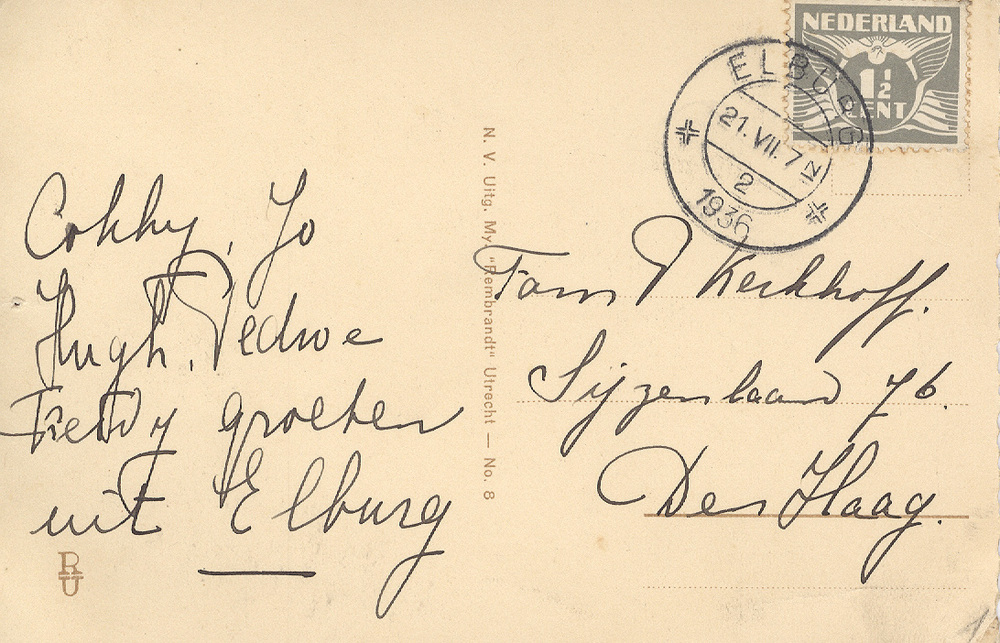 NEDERLAND
1½
CENT
ELBURG
21.VII.7 N
2
1936
Cokky, Jo
Hugh,
Freddy groeten
uit Elburg
R
U
N. V. Uitg. My „Rembrandt" Utrecht — No. 8
Fam Kerkhoff.
Sijzenlaan 76.
Den Haag.